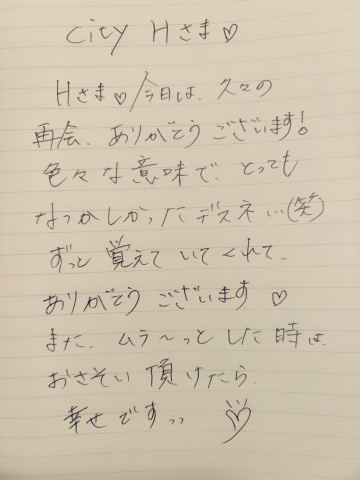 city Hさま♡
Hさま♡今日は、久々の
再会、ありがとうございます!
色々な意味で、とっても
なつかしかったデスネ…(笑)
ずっと覚えていてくれて、
ありがとうございます♡
また、ムラ〜っとした時は、
おさそい頂けたら、
幸せです、、♡